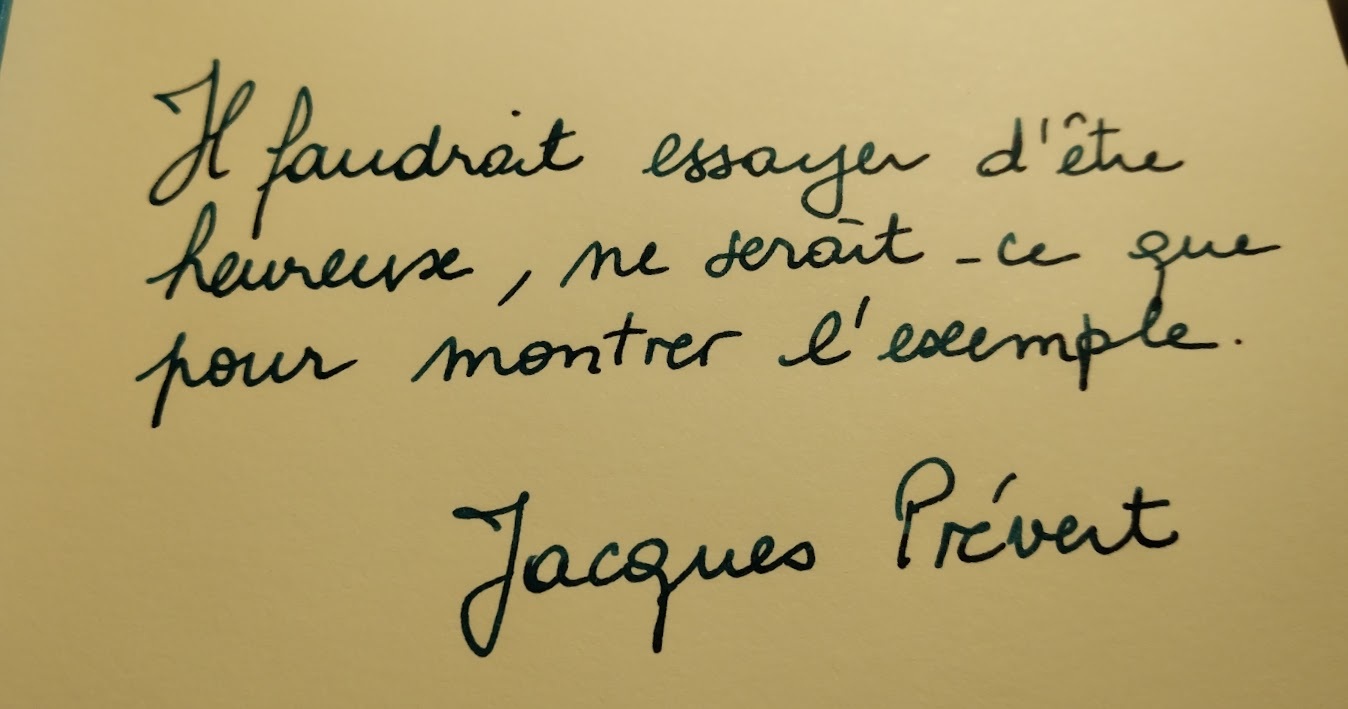 Il faudrait essayer d'être
heureuse, ne serait-ce que
pour montrer l'exemple.
Jacques Prévert